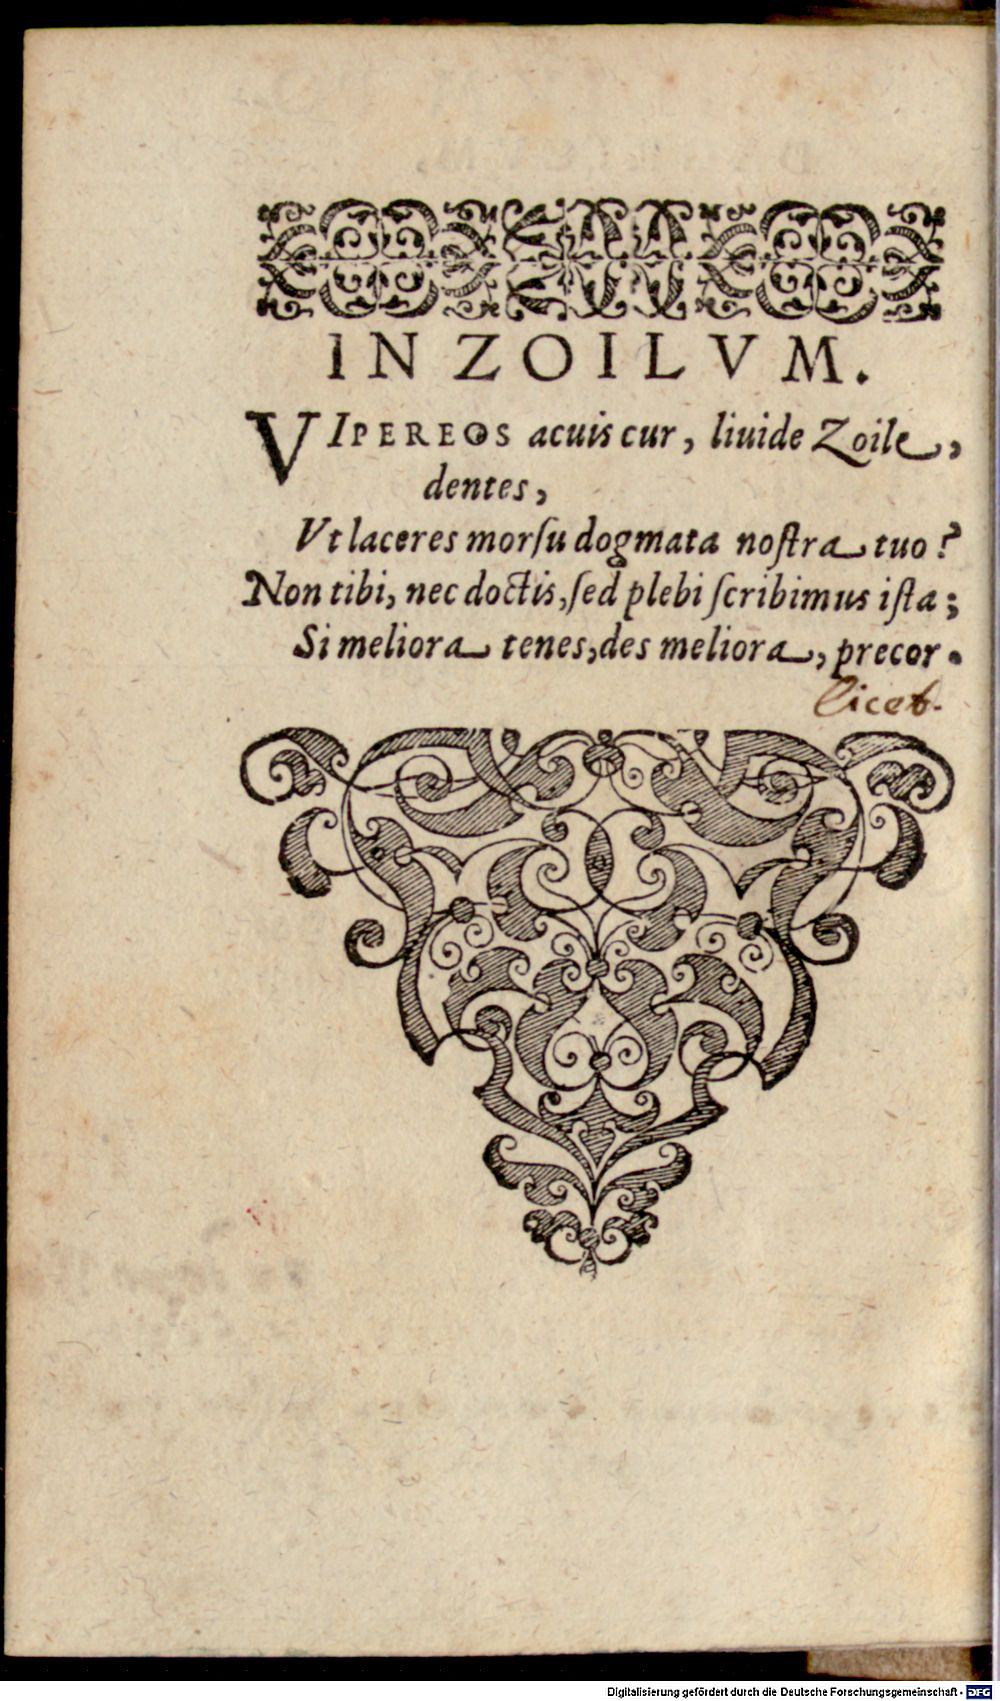 IN ZOILVM.
VIPEREOS acuis cur, liuide Zoile,
dentes,
Vt laceres morſu dogmata noſtra tuo?
Non tibi, nec doctis, ſed plebi ſcribimus iſta;
Si meliora tenes, des meliora, precor.
licet.
Digitalisierung gefördert durch die Deutsche Forschungsgemeinschaft - DFG